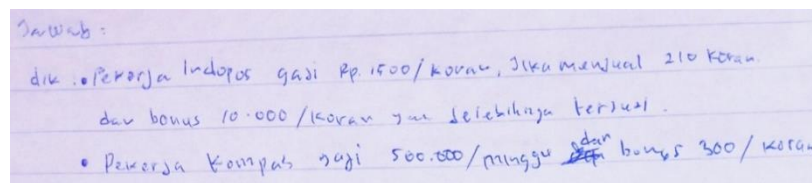 Jawab :
dik : • Pekerja Indopos gaji Rp. 1500/koran, Jika menjual 210 koran.
dan bonus 10.000/koran yan selebihnya terjual.
• Pekerja Kompas gaji 500.000/minggu dan bonus 300/koran